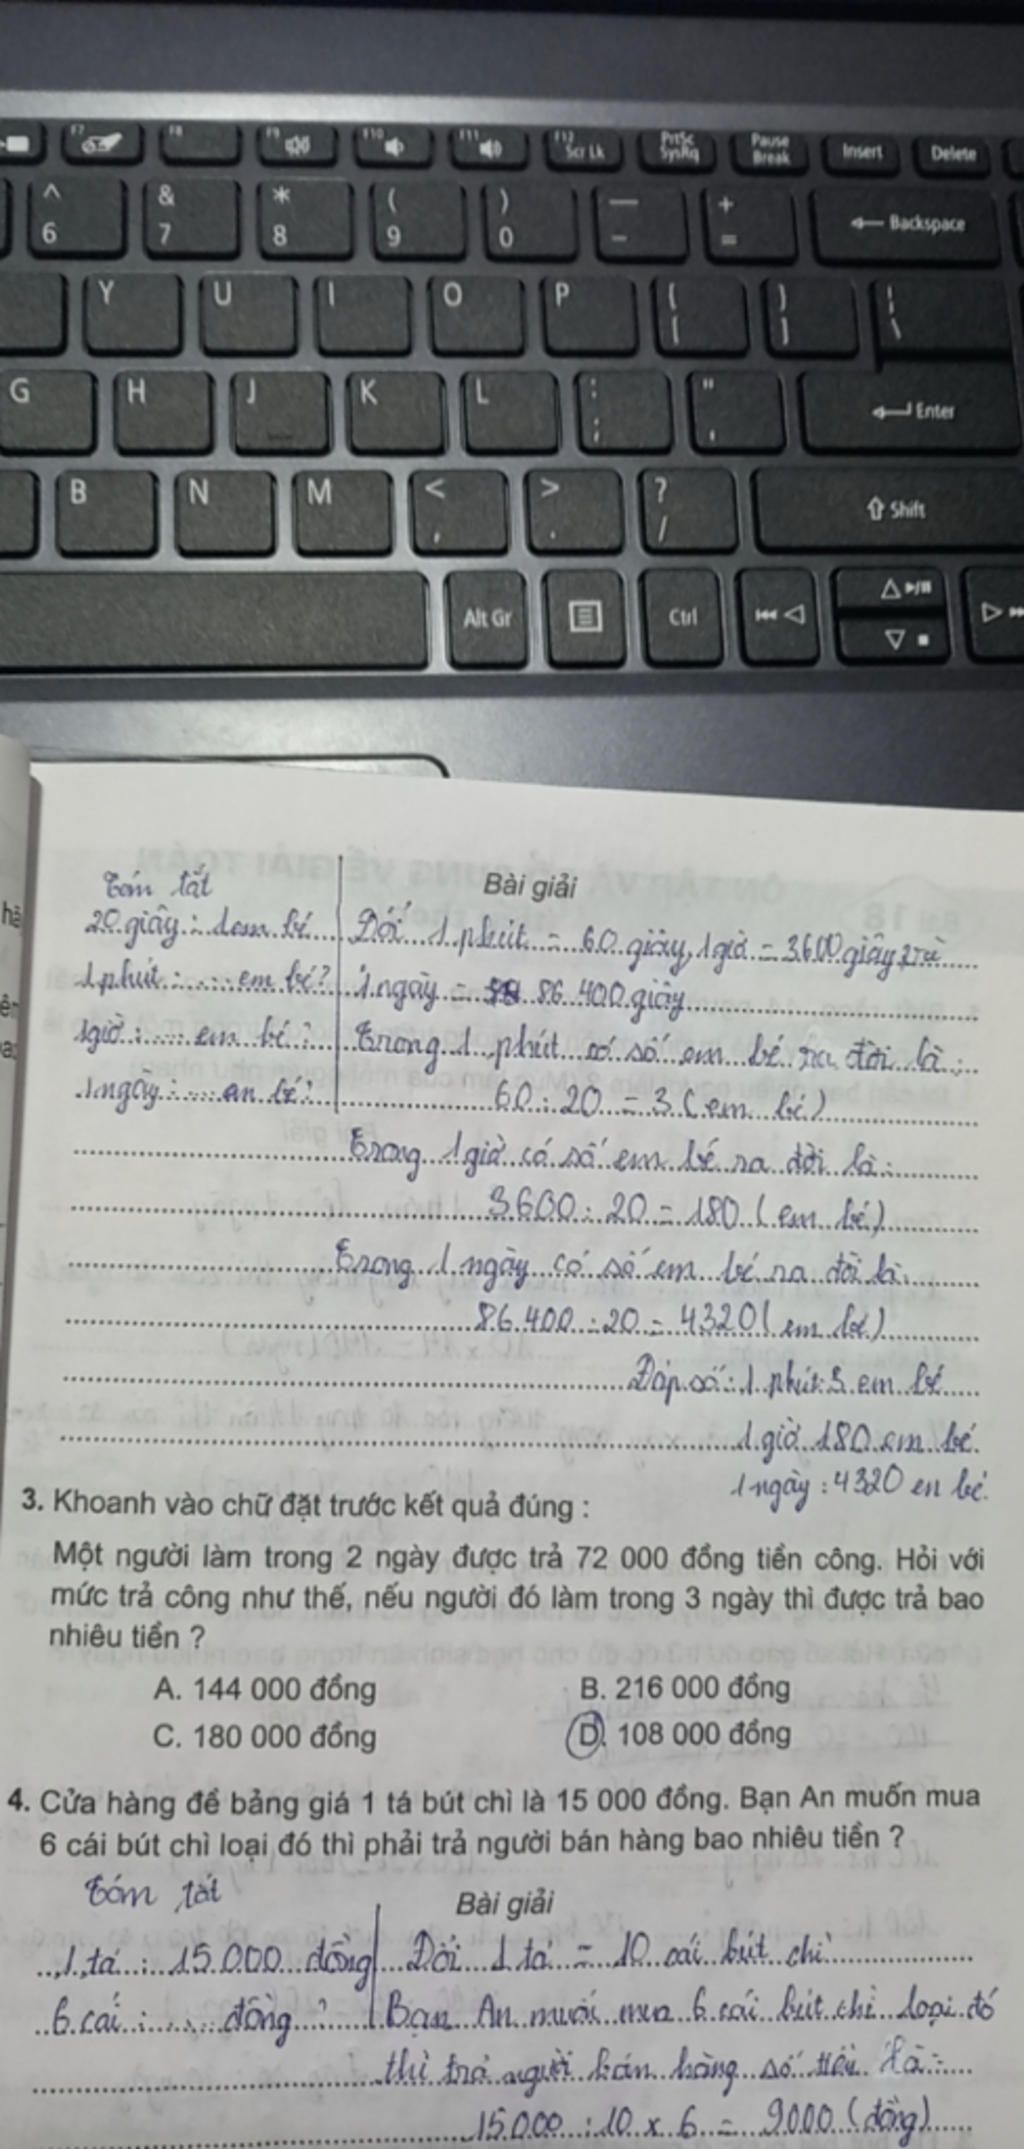 F7 F8 F9 F10 F11 F12 Scr Lk PrtSc SysRq Pause Break Insert Delete
^ 6 & 7 * 8 ( 9 ) 0 — - + = ← Backspace
Y U I O P { [ } ] ¦ \
G H J K L : ; " ' Enter
B N M < , > . ? / ⇧ Shift
Alt Gr Ctrl
Tóm tắt
Bài giải
20 giây : 1 em bé
Đổi 1 phút = 60 giây, 1 giờ = 3600 giây
1 phút : ..... em bé ?
1 ngày = 86 400 giây
1 giờ : ..... em bé ?
Trong 1 phút có số em bé ra đời là :
1 ngày : ..... em bé ?
60 : 20 = 3 ( em bé )
Trong 1 giờ có số em bé ra đời là :
3600 : 20 = 180 ( em bé )
Trong 1 ngày có số em bé ra đời là
86 400 : 20 = 4320 ( em bé )
Đáp số : 1 phút : 3 em bé
1 giờ 180 em bé.
1 ngày : 4320 em bé.
3. Khoanh vào chữ đặt trước kết quả đúng :
Một người làm trong 2 ngày được trả 72 000 đồng tiền công. Hỏi với
mức trả công như thế, nếu người đó làm trong 3 ngày thì được trả bao
nhiêu tiền ?
A. 144 000 đồng
B. 216 000 đồng
C. 180 000 đồng
D. 108 000 đồng
4. Cửa hàng để bảng giá 1 tá bút chì là 15 000 đồng. Bạn An muốn mua
6 cái bút chì loại đó thì phải trả người bán hàng bao nhiêu tiền ?
Tóm tắt
Bài giải
1 tá : 15.000 đồng
Đổi 1 tá = 10 cái bút chì
6 cái : ..... đồng ?
Bạn An muối mua 6 cái bút chì loại đó
thì trả người bán hàng số tiền là :
15.000 : 10 x 6 = 9000 (đồng)